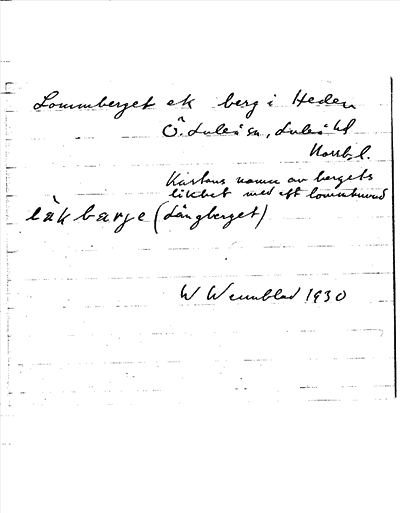 Lommberget ek berg i Heden
Ö. Luleå sn, Luleå hd
Norrb. l.
Kartans namn av bergets
likhet med ett lommhuvud
låkbarje (Långberget)
W Wennblad 1930